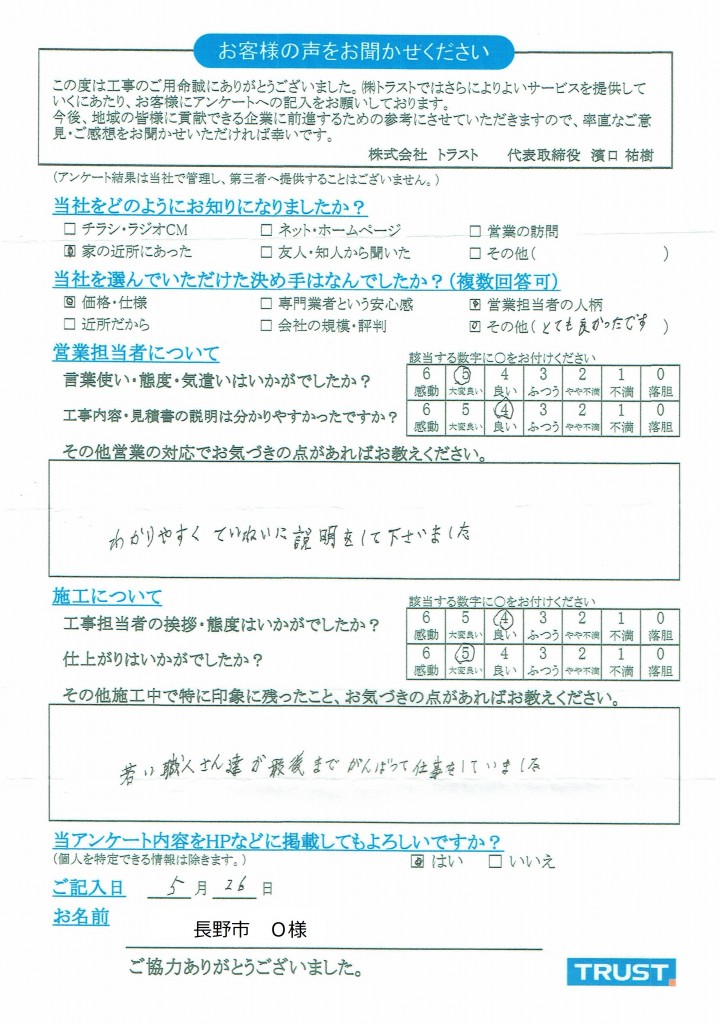 お客様の声をお聞かせください
この度は工事のご用命誠にありがとうございました。㈱トラストではさらによりよいサービスを提供して
いくにあたり、お客様にアンケートへの記入をお願いしております。
今後、地域の皆様に貢献できる企業に前進するための参考にさせていただきますので、率直なご意
見・ご感想をお聞かせいただければ幸いです。
株式会社 トラスト 代表取締役 濱口 祐樹
(アンケート結果は当社で管理し、第三者へ提供することはございません。)
当社をどのようにお知りになりましたか?
□ チラシ・ラジオCM □ ネット・ホームページ □ 営業の訪問
☑ 家の近所にあった □ 友人・知人から聞いた □ その他( )
当社を選んでいただけた決め手はなんでしたか?(複数回答可)
☑ 価格・仕様 □ 専門業者という安心感 ☑ 営業担当者の人柄
□ 近所だから □ 会社の規模・評判 ☑ その他(とても良かったです)
営業担当者について 該当する数字に○をお付けください
言葉使い・態度・気遣いはいかがでしたか? 6 5 4 3 2 1 0
感動 大変良い 良い ふつう やや不満 不満 落胆
工事内容・見積書の説明は分かりやすかったですか? 6 5 4 3 2 1 0
感動 大変良い 良い ふつう やや不満 不満 落胆
その他営業の対応でお気づきの点があればお教えください。
わかりやすく ていねいに 説明をして下さいました
施工について 該当する数字に○をお付けください
工事担当者の挨拶・態度はいかがでしたか? 6 5 4 3 2 1 0
感動 大変良い 良い ふつう やや不満 不満 落胆
仕上がりはいかがでしたか? 6 5 4 3 2 1 0
感動 大変良い 良い ふつう やや不満 不満 落胆
その他施工中で特に印象に残ったこと、お気づきの点があればお教えください。
若い職人さん達が最後までがんばって仕事をしていました
当アンケート内容をHPなどに掲載してもよろしいですか?
(個人を特定できる情報は除きます。) ☑ はい □ いいえ
ご記入日 5 月 26 日
お名前 長野市 O様
ご協力ありがとうございました。
TRUST